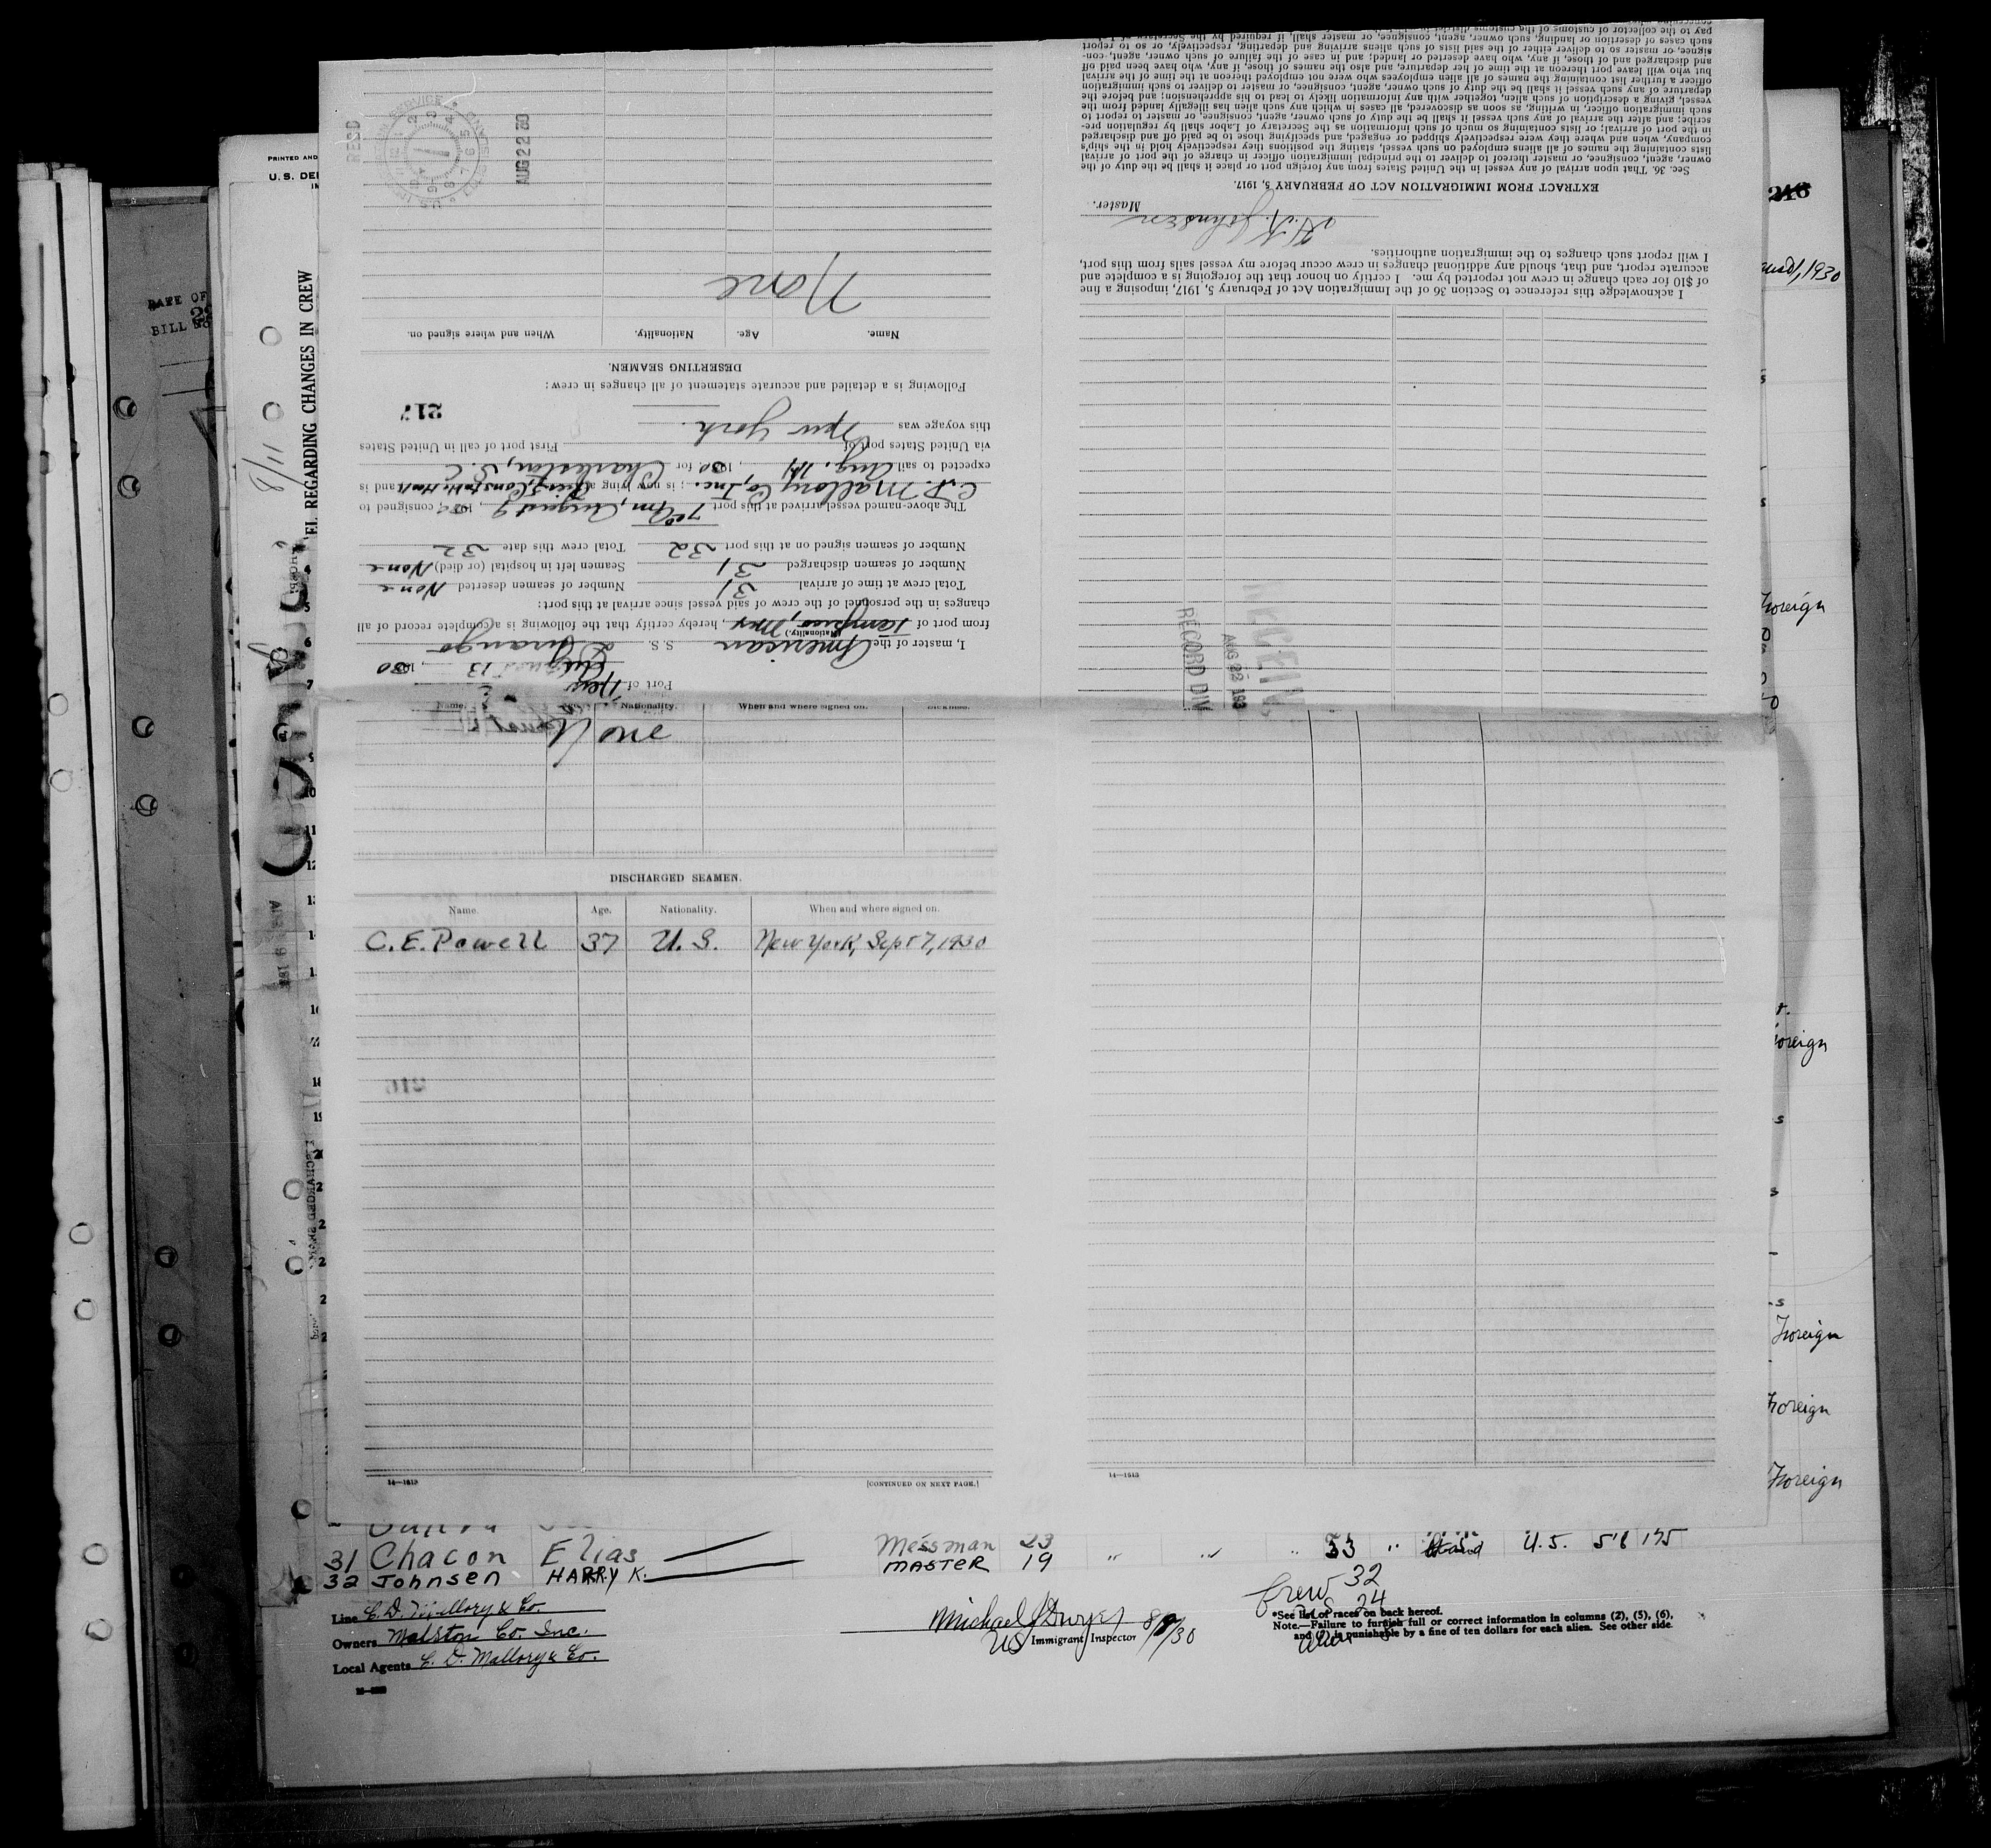 PRINTED AND
U. S. DE
246
1930
DATE OF
BILL No.
EL REGARDING CHANGES IN CREW
8/11
pay to the collector of customs of the customs district
such cases of desertion or landing, such owner, agent, consignee, or master shall, if required by the Secretary of Labor,
signee, or master so to deliver either of the said lists of such aliens arriving and departing, respectively, or so to report
and discharged and of those, if any, who have deserted or landed; and in case of the failure of such owner, agent, con-
but who will leave port thereon at the time of her departure, and also the names of those, if any, who have been paid off
officer a further list containing the names of all alien employees who were not employed thereon at the time of the arrival
departure of any such vessel it shall be the duty of such owner, agent, consignee, or master to deliver to such immigration
vessel, giving a description of such alien, together with any information likely to lead to his apprehension; and before the
such immigration officer, in writing, as soon as discovered, all cases in which any such alien has illegally landed from the
scribe; and after the arrival of any such vessel it shall be the duty of such owner, agent, consignee, or master to report to
in the port of arrival; or lists containing so much of such information as the Secretary of Labor shall by regulation pre-
company, when and where they were respectively shipped or engaged, and specifying those to be paid off and discharged
lists containing the names of all aliens employed on such vessel, stating the positions they respectively hold in the ship's
owner, agent, consignee, or master thereof to deliver to the principal immigration officer in charge of the port of arrival
Sec. 36. That upon arrival of any vessel in the United States from any foreign port or place it shall be the duty of the
EXTRACT FROM IMMIGRATION ACT OF FEBRUARY 5, 1917.
H. K. Johnsen Master.
I will report such changes to the immigration authorities.
accurate report, and that, should any additional changes in crew occur before my vessel sails from this port,
of $10 for each change in crew not reported by me. I certify on honor that the foregoing is a complete and
I acknowledge this reference to Section 36 of the Immigration Act of February 5, 1917, imposing a fine
RECORD DIV
AUG 22 193
REC'D
AUG 22 30
None
Name. Age. Nationality. When and where signed on.
DESERTING SEAMEN.
Following is a detailed and accurate statement of all changes in crew:
217
this voyage was New York.
via United States port of First port of call in United States
expected to sail Aug. 14, 1930 for Charleston, S. C.
C. D. Mallory Co, Inc.; is now lying at and is
The above-named vessel arrived at this port August 9 consigned to
Number of seamen signed on at this port 32 Total crew this date 32
Number of seamen discharged 31 Seamen left in hospital (or died) None
Total crew at time of arrival 31 Number of seamen deserted None
changes in the personnel of the crew of said vessel since arrival at this port:
from port of Tampico, Mex, hereby certify that the following is a complete record of all
(Nationality.)
I, master of the American S. S. Durango
August 13, 1930
Port of New
Name. Nationality. When and where signed on. Sickness.
None
DISCHARGED SEAMEN.
Name. Age. Nationality. When and where signed on.
C. E. Powell 37 U. S. New York, Sept 7, 1930
14—1613 [CONTINUED ON NEXT PAGE.]
14—1613
Foreign
Foreign
Foreign
Foreign
Foreign
31 Chacon Elias Messman 23 " " " 33 " U.S. 5'6 175
32 Johnsen HARRY K. MASTER 19
Crew 32
24
Line C. D. Mallory & Co.
Owners Malston Co. Inc.
Local Agents C. D. Mallory & Co.
Michael J Dwyer 8/9/30
US Immigrant Inspector
*See list of races on back hereof.
Note.—Failure to furnish full or correct information in columns (2), (5), (6),
and (7) is punishable by a fine of ten dollars for each alien. See other side.